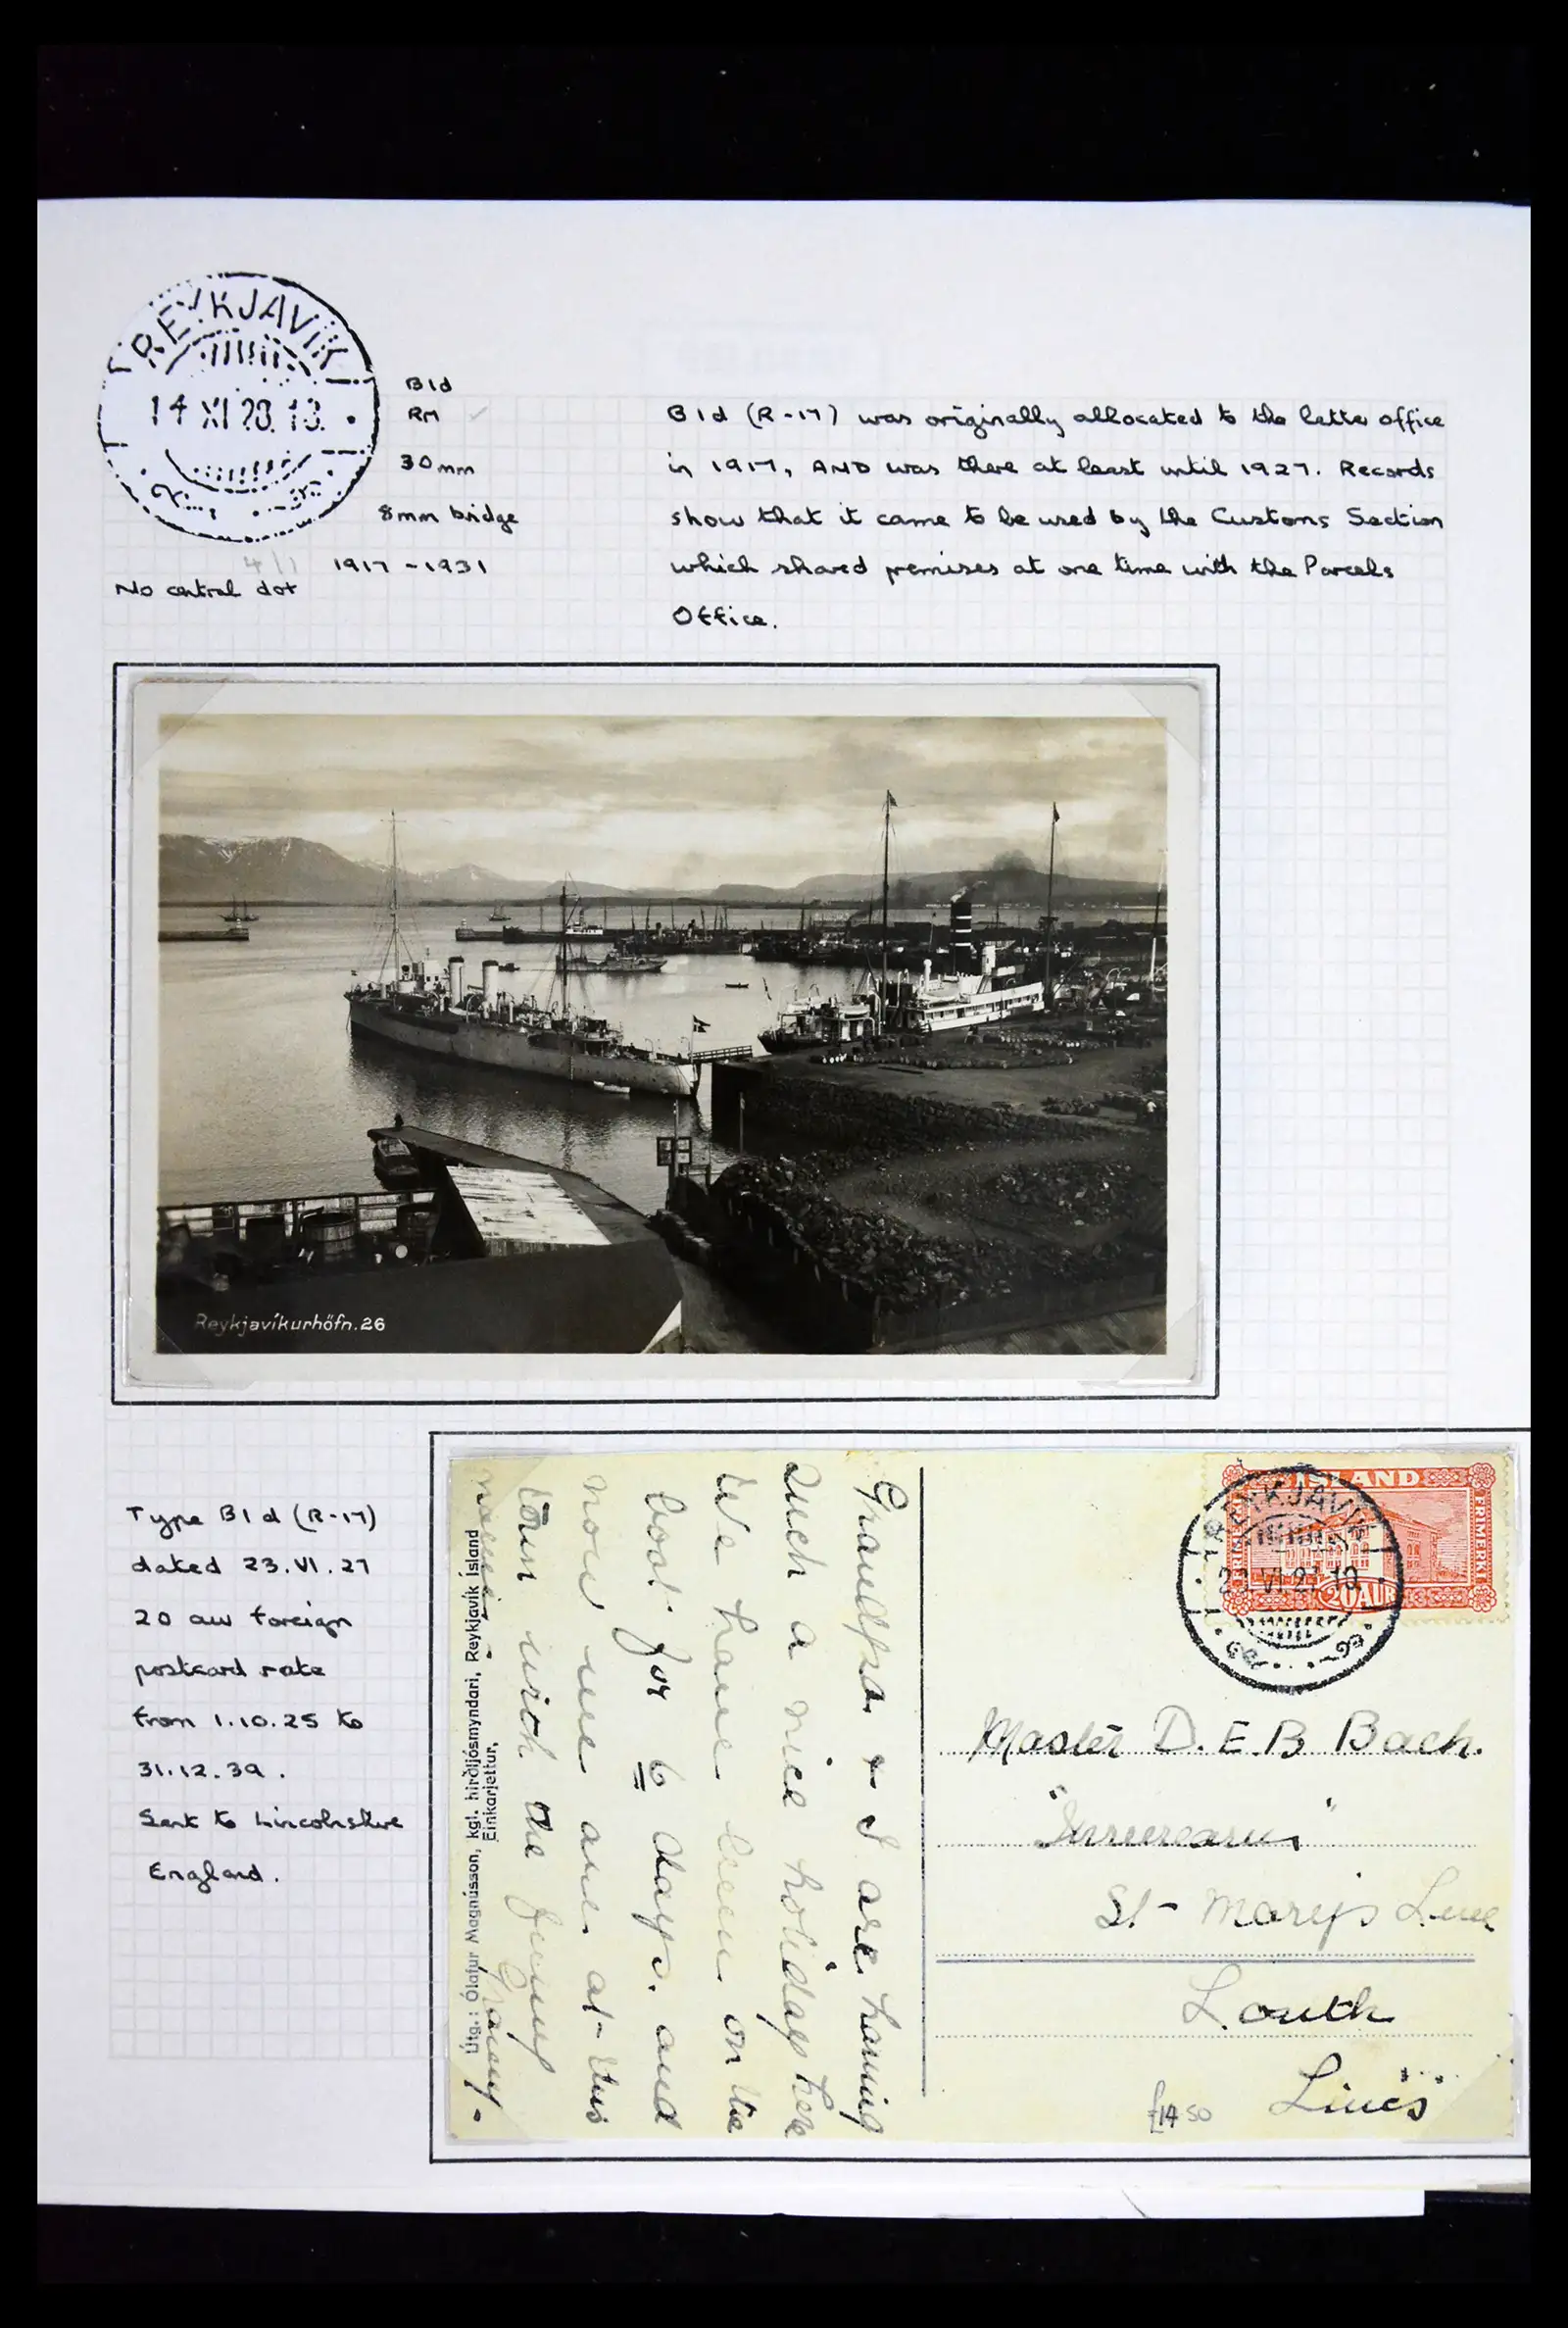 REYKJAVIK
14 XI 28.13.
B1d
RM
30mm
8mm bridge
1917 - 1931
No central dot
B1d (R-17) was originally allocated to the letter office
in 1917, AND was there at least until 1927. Records
show that it came to be used by the Customs Section
which shared premises at one time with the Parcels
Office.
Reykjavíkurhöfn.26
Type B1d (R-17)
dated 23.VI.27
20 aur foreign
postcard rate
from 1.10.25 to
31.12.39.
Sent to Lincolnshire
England.
Grandpa & I are having
such a nice holiday here
We have been on the
boat for 6 days. and
now we are at this
town with the funny
name
Granny.
Útg.: Ólafur Magnússon, kgl. hirðljósmyndari, Reykjavík Ísland
Einkarjettur.
ÍSLAND
FRÍMERKI
FRÍMERKI
20 AUR
REYKJAVIK
VI.27.10
Master D.E.B Bach.
St- Marys Lane
Louth
Lincs
£14 50